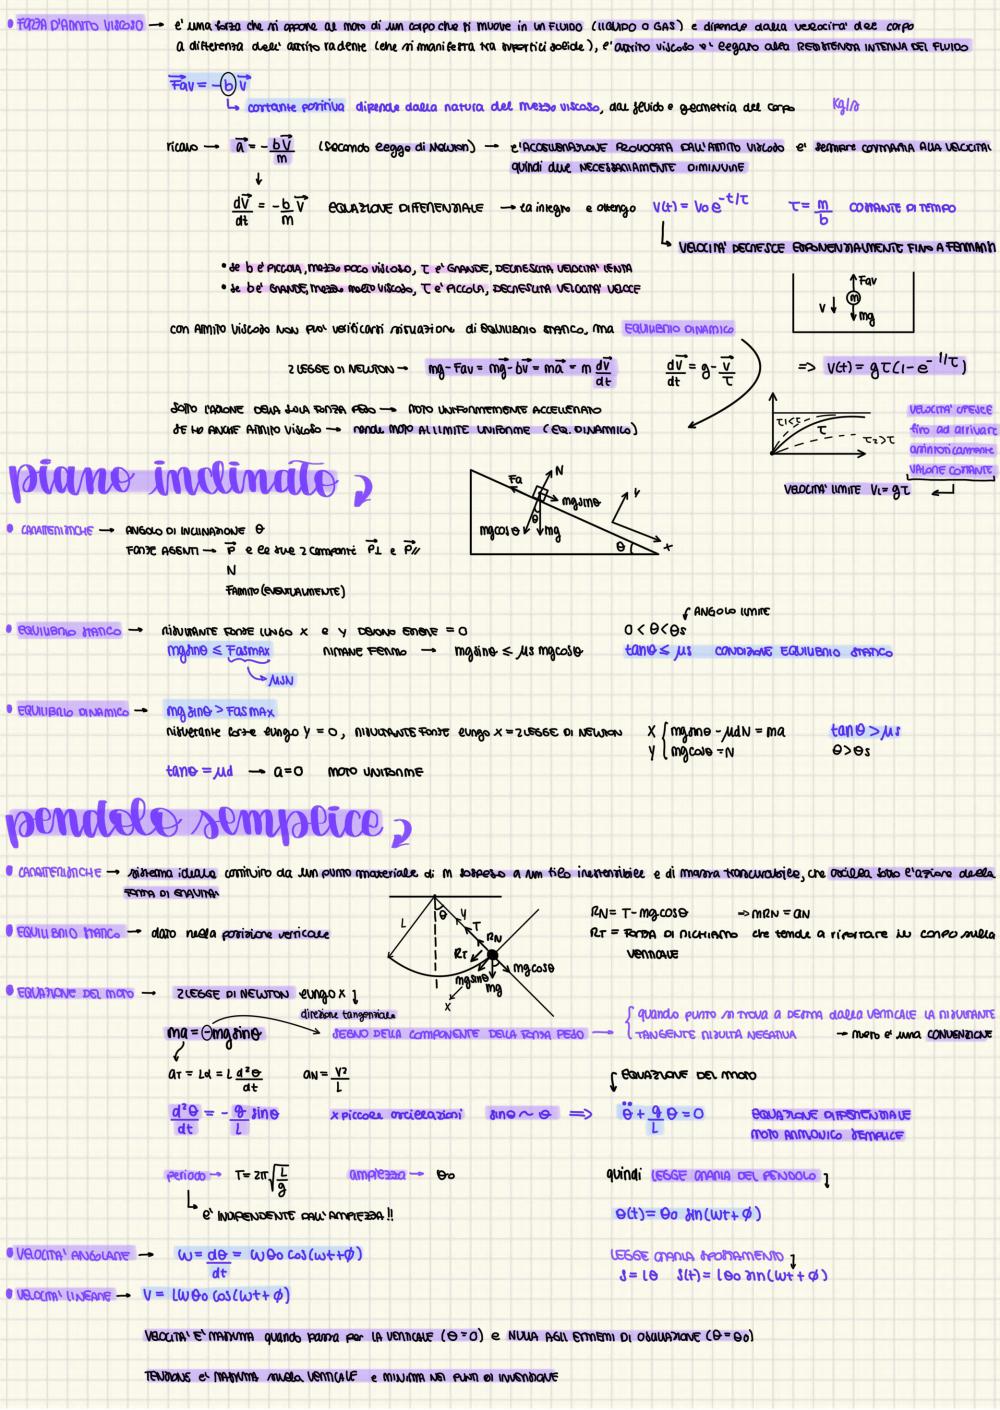 • FORZA D'ATTRITO VISCOSO → è una forza che si oppone al moto di un corpo che si muove in un FLUIDO (LIQUIDO O GAS) e dipende dalla velocità del corpo
a differenza dell'attrito radente (che si manifesta tra superfici solide), l'attrito viscoso è legato alla RESISTENZA INTERNA DEL FLUIDO
Fav = -b v
↳ costante positiva dipende dalla natura del mezzo viscoso, dal fluido e geometria del corpo Kg/s
ricavo → a = - bv/m (secondo legge di Newton) → l'ACCELERAZIONE PROVOCATA DALL'ATTRITO VISCOSO è sempre CONTRARIA ALLA VELOCITA'
quindi deve NECESSARIAMENTE DIMINUIRE
dv/dt = - b/m v EQUAZIONE DIFFERENZIALE → la integro e ottengo v(t) = v0 e^-t/τ τ = m/b COSTANTE DI TEMPO
↳ VELOCITA' DECRESCE ESPONENZIALMENTE FINO A FERMARSI
• se b è PICCOLA, mezzo poco viscoso, τ è GRANDE, DECRESCITA VELOCITA' LENTA
• se b è GRANDE, mezzo molto viscoso, τ è PICCOLA, DECRESCITA VELOCITA' VELOCE
Fav
m
v ↓ mg
con ATTRITO VISCOSO NON PUO' verificarsi situazione di EQUILIBRIO STATICO, ma EQUILIBRIO DINAMICO
2 LEGGE DI NEWTON → mg - Fav = mg - bv = ma = m dv/dt dv/dt = g - v/τ => v(t) = gτ(1 - e^-1/τ)
SOTTO L'AZIONE DELLA SOLA FORZA PESO → MOTO UNIFORMEMENTE ACCELERATO
SE HO ANCHE ATTRITO VISCOSO → rende MOTO AL LIMITE UNIFORME (EQ. DINAMICO)
τ1<τ
τ
τ2>τ
VELOCITA' CRESCE
fino ad arrivare
asintoticamente
VALORE COSTANTE
VELOCITA' LIMITE VL = gτ ↵
piano inclinato
Fa N
mg sinθ
mg cosθ θ mg
y
x
θ
• CARATTERISTICHE → ANGOLO DI INCLINAZIONE θ
FORZE AGENTI → P e le sue 2 componenti P⊥ e P//
N
FATTRITO (EVENTUALMENTE)
• EQUILIBRIO STATICO → RISULTANTE FORZE LUNGO X e Y DEVONO ESSERE = 0 0 < θ < θs
ANGOLO LIMITE
mg sinθ ≤ Fasmax RIMANE FERMO → mg sinθ ≤ μs mg cosθ tanθ ≤ μs CONDIZIONE EQUILIBRIO STATICO
↘ μsN
• EQUILIBRIO DINAMICO → mg sinθ > Fasmax
risultante forze lungo Y = 0, RISULTANTE FORZE lungo X = 2 LEGGE DI NEWTON X { mg sinθ - μdN = ma tanθ > μs
Y { mg cosθ = N θ > θs
tanθ = μd → a = 0 MOTO UNIFORME
pendolo semplice
• CARATTERISTICHE → sistema ideale costituito da un punto materiale di m sospeso a un filo inestensibile e di massa trascurabile, che oscilla sotto l'azione della
FORZA DI GRAVITA'
• EQUILIBRIO STATICO → dato nella posizione verticale
L θ y T RN
RT
mg sinθ mg mg cosθ
x
RN = T - mg cosθ => mRN = aN
RT = FORZA DI RICHIAMO che tende a riportare il corpo sulla
VERTICALE
• EQUAZIONE DEL MOTO → 2 LEGGE DI NEWTON lungo x
direzione tangenziale
ma = -mg sinθ SEGNO DELLA COMPONENTE DELLA FORZA PESO → { quando punto si trova a DESTRA dalla VERTICALE LA RISULTANTE
TANGENTE RISULTA NEGATIVA → meno è una CONVENZIONE
aT = Lα = L d²θ/dt aN = v²/L
EQUAZIONE DEL MOTO
d²θ/dt = - g/L sinθ x piccole oscillazioni sinθ ~ θ => θ̈ + g/L θ = 0 EQUAZIONE DIFFERENZIALE
MOTO ARMONICO SEMPLICE
periodo → T = 2π √L/g ampiezza → θ0 quindi LEGGE ORARIA DEL PENDOLO
↳ è INDIPENDENTE DALL'AMPIEZZA!! θ(t) = θ0 sin(ωt + φ)
• VELOCITA' ANGOLARE → ω = dθ/dt = ωθ0 cos(ωt + φ) LEGGE ORARIA SPOSTAMENTO
s = Lθ s(t) = Lθ0 sin(ωt + φ)
• VELOCITA' LINEARE → v = Lωθ0 cos(ωt + φ)
VELOCITA' E' MASSIMA quando passa per LA VERTICALE (θ = 0) e NULLA AGLI ESTREMI DI OSCILLAZIONE (θ = θ0)
TENSIONE è MASSIMA sulla VERTICALE e MINIMA NEI PUNTI DI INVERSIONE